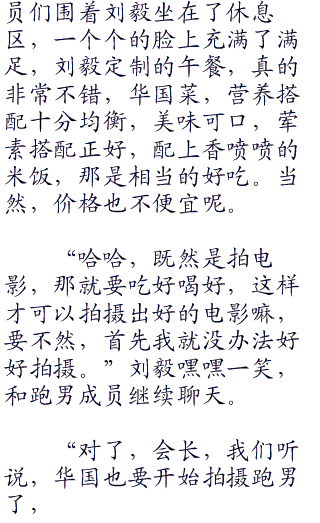 员们围着刘毅坐在了休息
区，一个个的脸上充满了满
足，刘毅定制的午餐，真的
非常不错，华国菜，营养搭
配十分均衡，美味可口，荤
素搭配正好，配上香喷喷的
米饭，那是相当的好吃。当
然，价格也不便宜呢。
“哈哈，既然是拍电
影，那就要吃好喝好，这样
才可以拍摄出好的电影嘛，
要不然，首先我就没办法好
好拍摄。”刘毅嘿嘿一笑，
和跑男成员继续聊天。
“对了，会长，我们听
说，华国也要开始拍摄跑男
了，